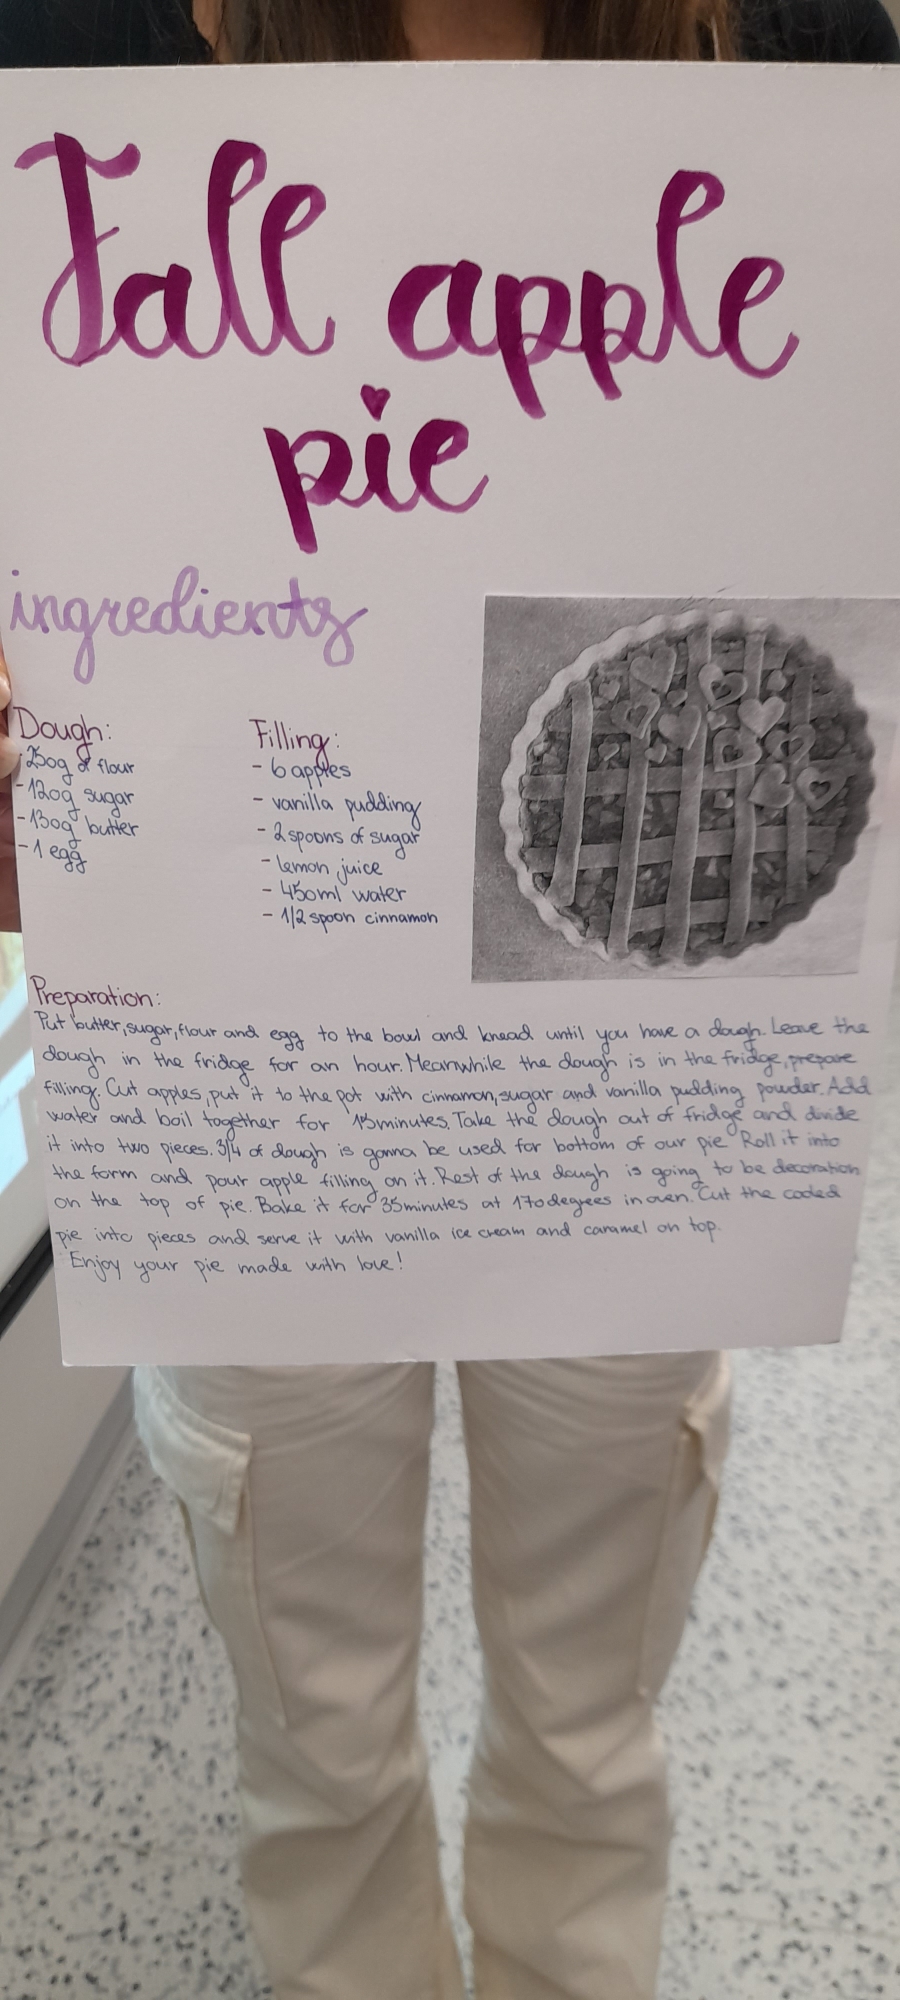 Fall apple
pie
ingredients
Dough:
- 250g of flour
- 120g sugar
- 130g butter
- 1 egg
Filling:
- 6 apples
- vanilla pudding
- 2 spoons of sugar
- lemon juice
- 450ml water
- 1/2 spoon cinnamon
Preparation:
Put butter, sugar, flour and egg to the bowl and knead until you have a dough. Leave the
dough in the fridge for an hour. Meanwhile the dough is in the fridge, prepare
filling. Cut apples, put it to the pot with cinnamon, sugar and vanilla pudding powder. Add
water and boil together for 15minutes. Take the dough out of fridge and divide
it into two pieces. 3/4 of dough is gonna be used for bottom of our pie. Roll it into
the form and pour apple filling on it. Rest of the dough is going to be decoration
on the top of pie. Bake it for 35minutes at 170degrees in oven. Cut the cooled
pie into pieces and serve it with vanilla ice cream and caramel on top.
Enjoy your pie made with love!